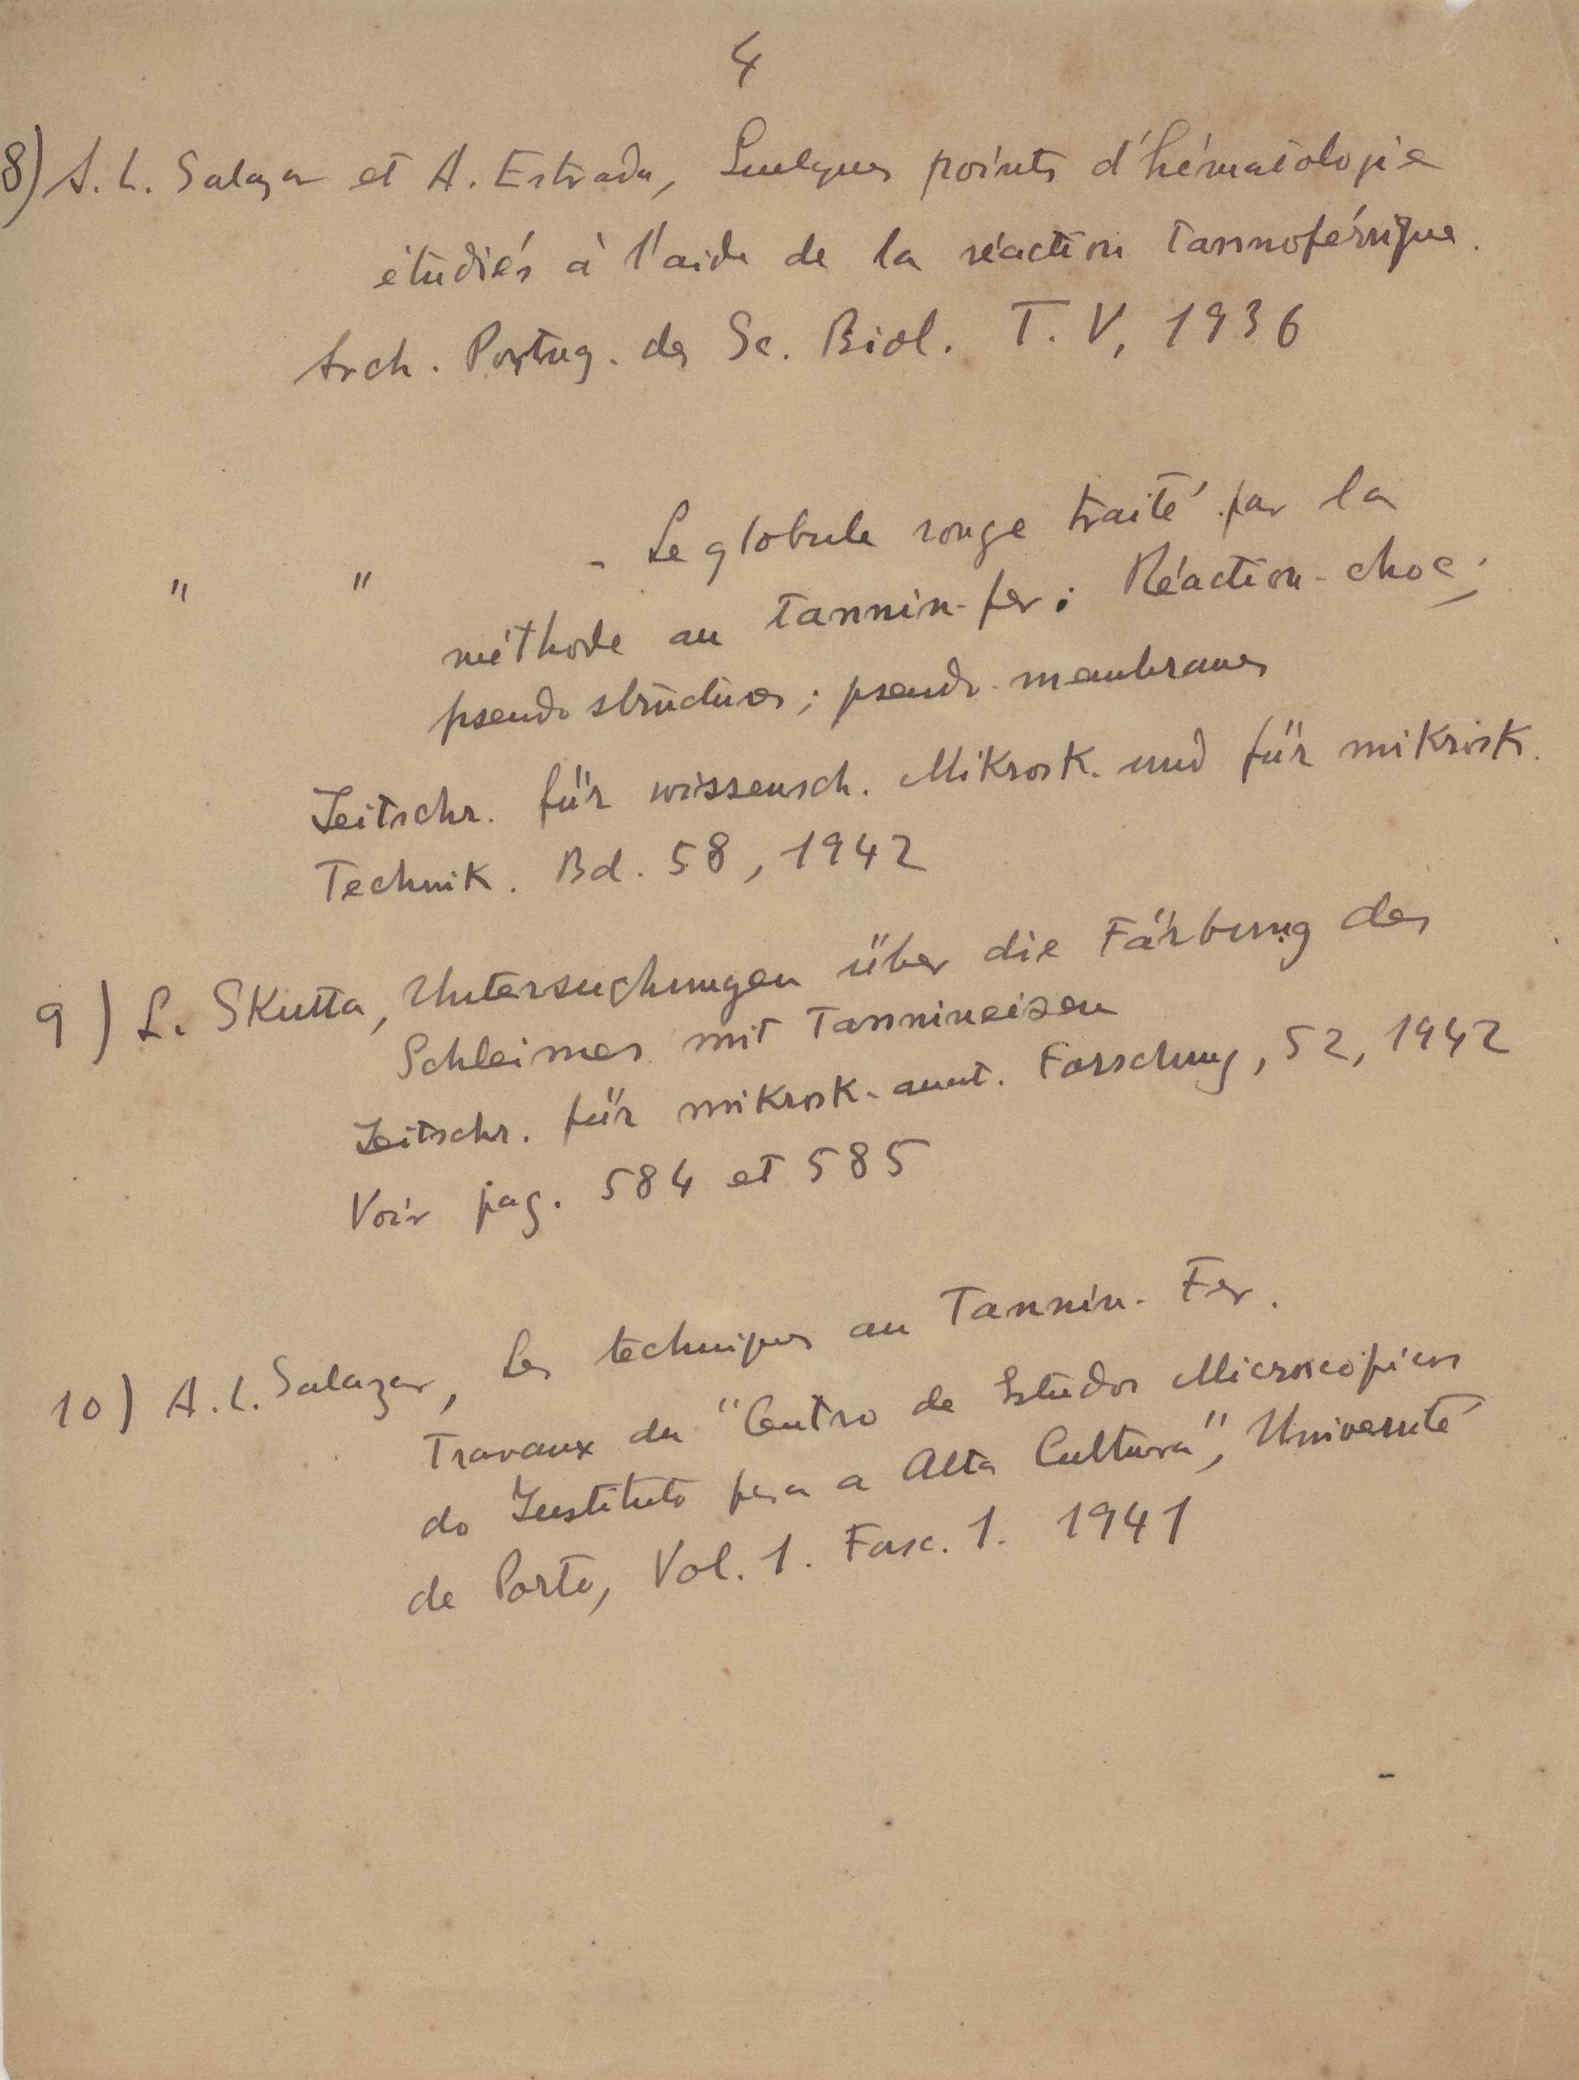 4
8) A. L. Salazar et A. Estrada, Quelques points d'hématologie
étudiés à l'aide de la réaction tannoférrique.
Arch. Portug. des Sc. Biol. T. V, 1936
" " - Le globule rouge traité par la
méthode au tannin-fer: Réaction-choc;
pseudo structures; pseudo-membranes
Zeitschr. für wissensch. Mikrosk. und für mikrosk.
Technik. Bd. 58, 1942
9) L. Skutta, Untersuchungen über die Färbung des
Schleimes mit Tannineisen
Zeitschr. für mikrosk-anat. Forschung, 52, 1942
Voir pag. 584 et 585
10) A. L. Salazar, Les techniques au Tannin-Fer.
Travaux du "Centro de Estudos Microscópicos
do Instituto para a Alta Cultura", Université
de Porto, Vol. 1. Fasc. 1. 1941